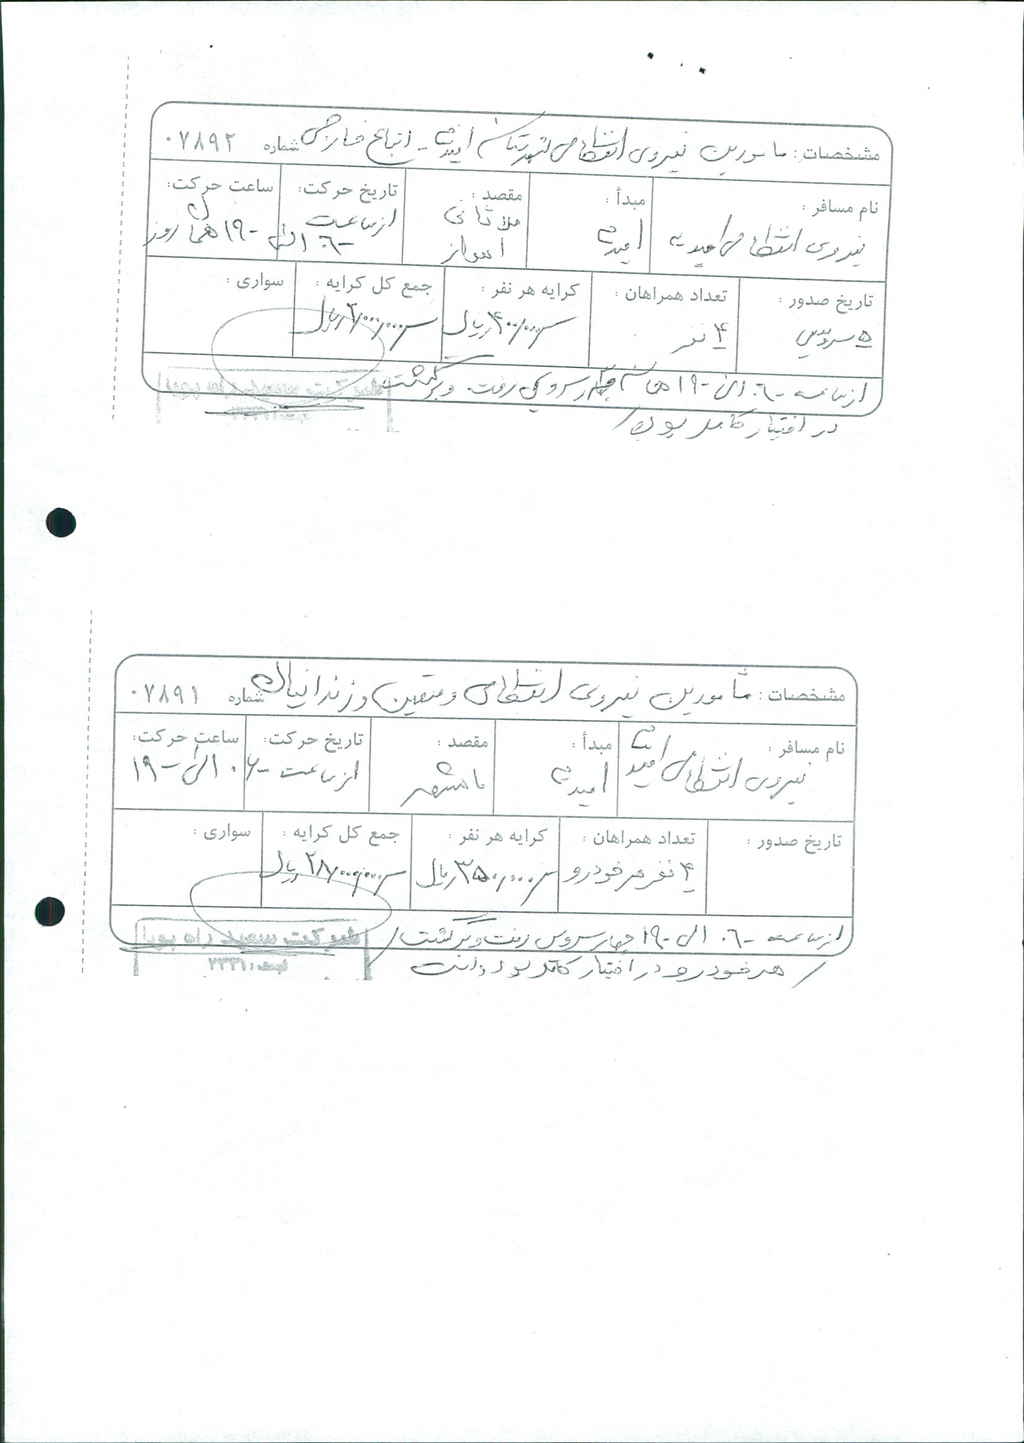 مشخصات : مامورین نیروی انتظامی شهرستان امیدیه - اتباع خارجی شماره ۰۷۸۹۲
نام مسافر : مبدأ : مقصد : تاریخ حرکت: ساعت حرکت:
نیروی انتظامی امیدیه امیدیه ملاثانی اهواز از ساعت ۰۶- الی ۱۹- همان روز
تاریخ صدور : تعداد همراهان : کرایه هر نفر : جمع کل کرایه : سواری :
۵ سرویس ۴ نفر ریال ریال
از ساعت ۰۶- الی ۱۹- سرویس رفت و برگشت
در اختیار کامل بودن
مشخصات : مامورین نیروی انتظامی و متهمین و زندانیان شماره ۰۷۸۹۱
نام مسافر : مبدأ : مقصد : تاریخ حرکت: ساعت حرکت:
نیروی انتظامی امیدیه امیدیه ماهشهر از ساعت ۰۶- الی ۱۹-
تاریخ صدور : تعداد همراهان : کرایه هر نفر : جمع کل کرایه : سواری :
۴ نفر هر خودرو ۳۵۰/۰۰۰ ریال ریال
از ساعت ۰۶- الی ۱۹- چهار سرویس رفت و برگشت /
/ هر خودرو در اختیار کامل بوده است
شرکت سعید راه پویا
ثبت: ۲۳۳۱